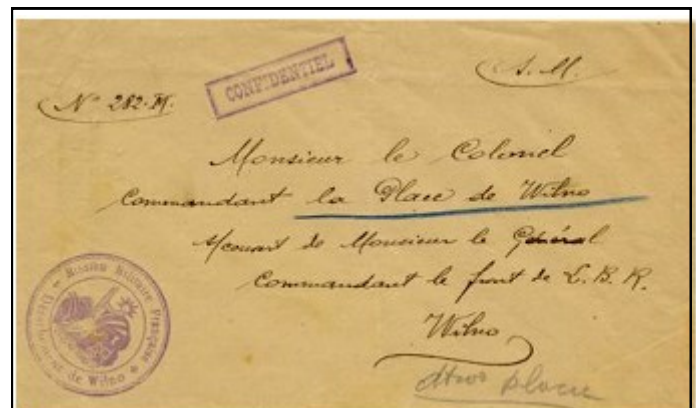 S. M.
CONFIDENTIEL
N° 282-M.
Monsieur le Colonel
Commandant la Place de Wilno
s/couvert de Monsieur le Général
Commandant le front de L. B. R.
Wilno
Mission Militaire Française
Détachement de Wilno
place